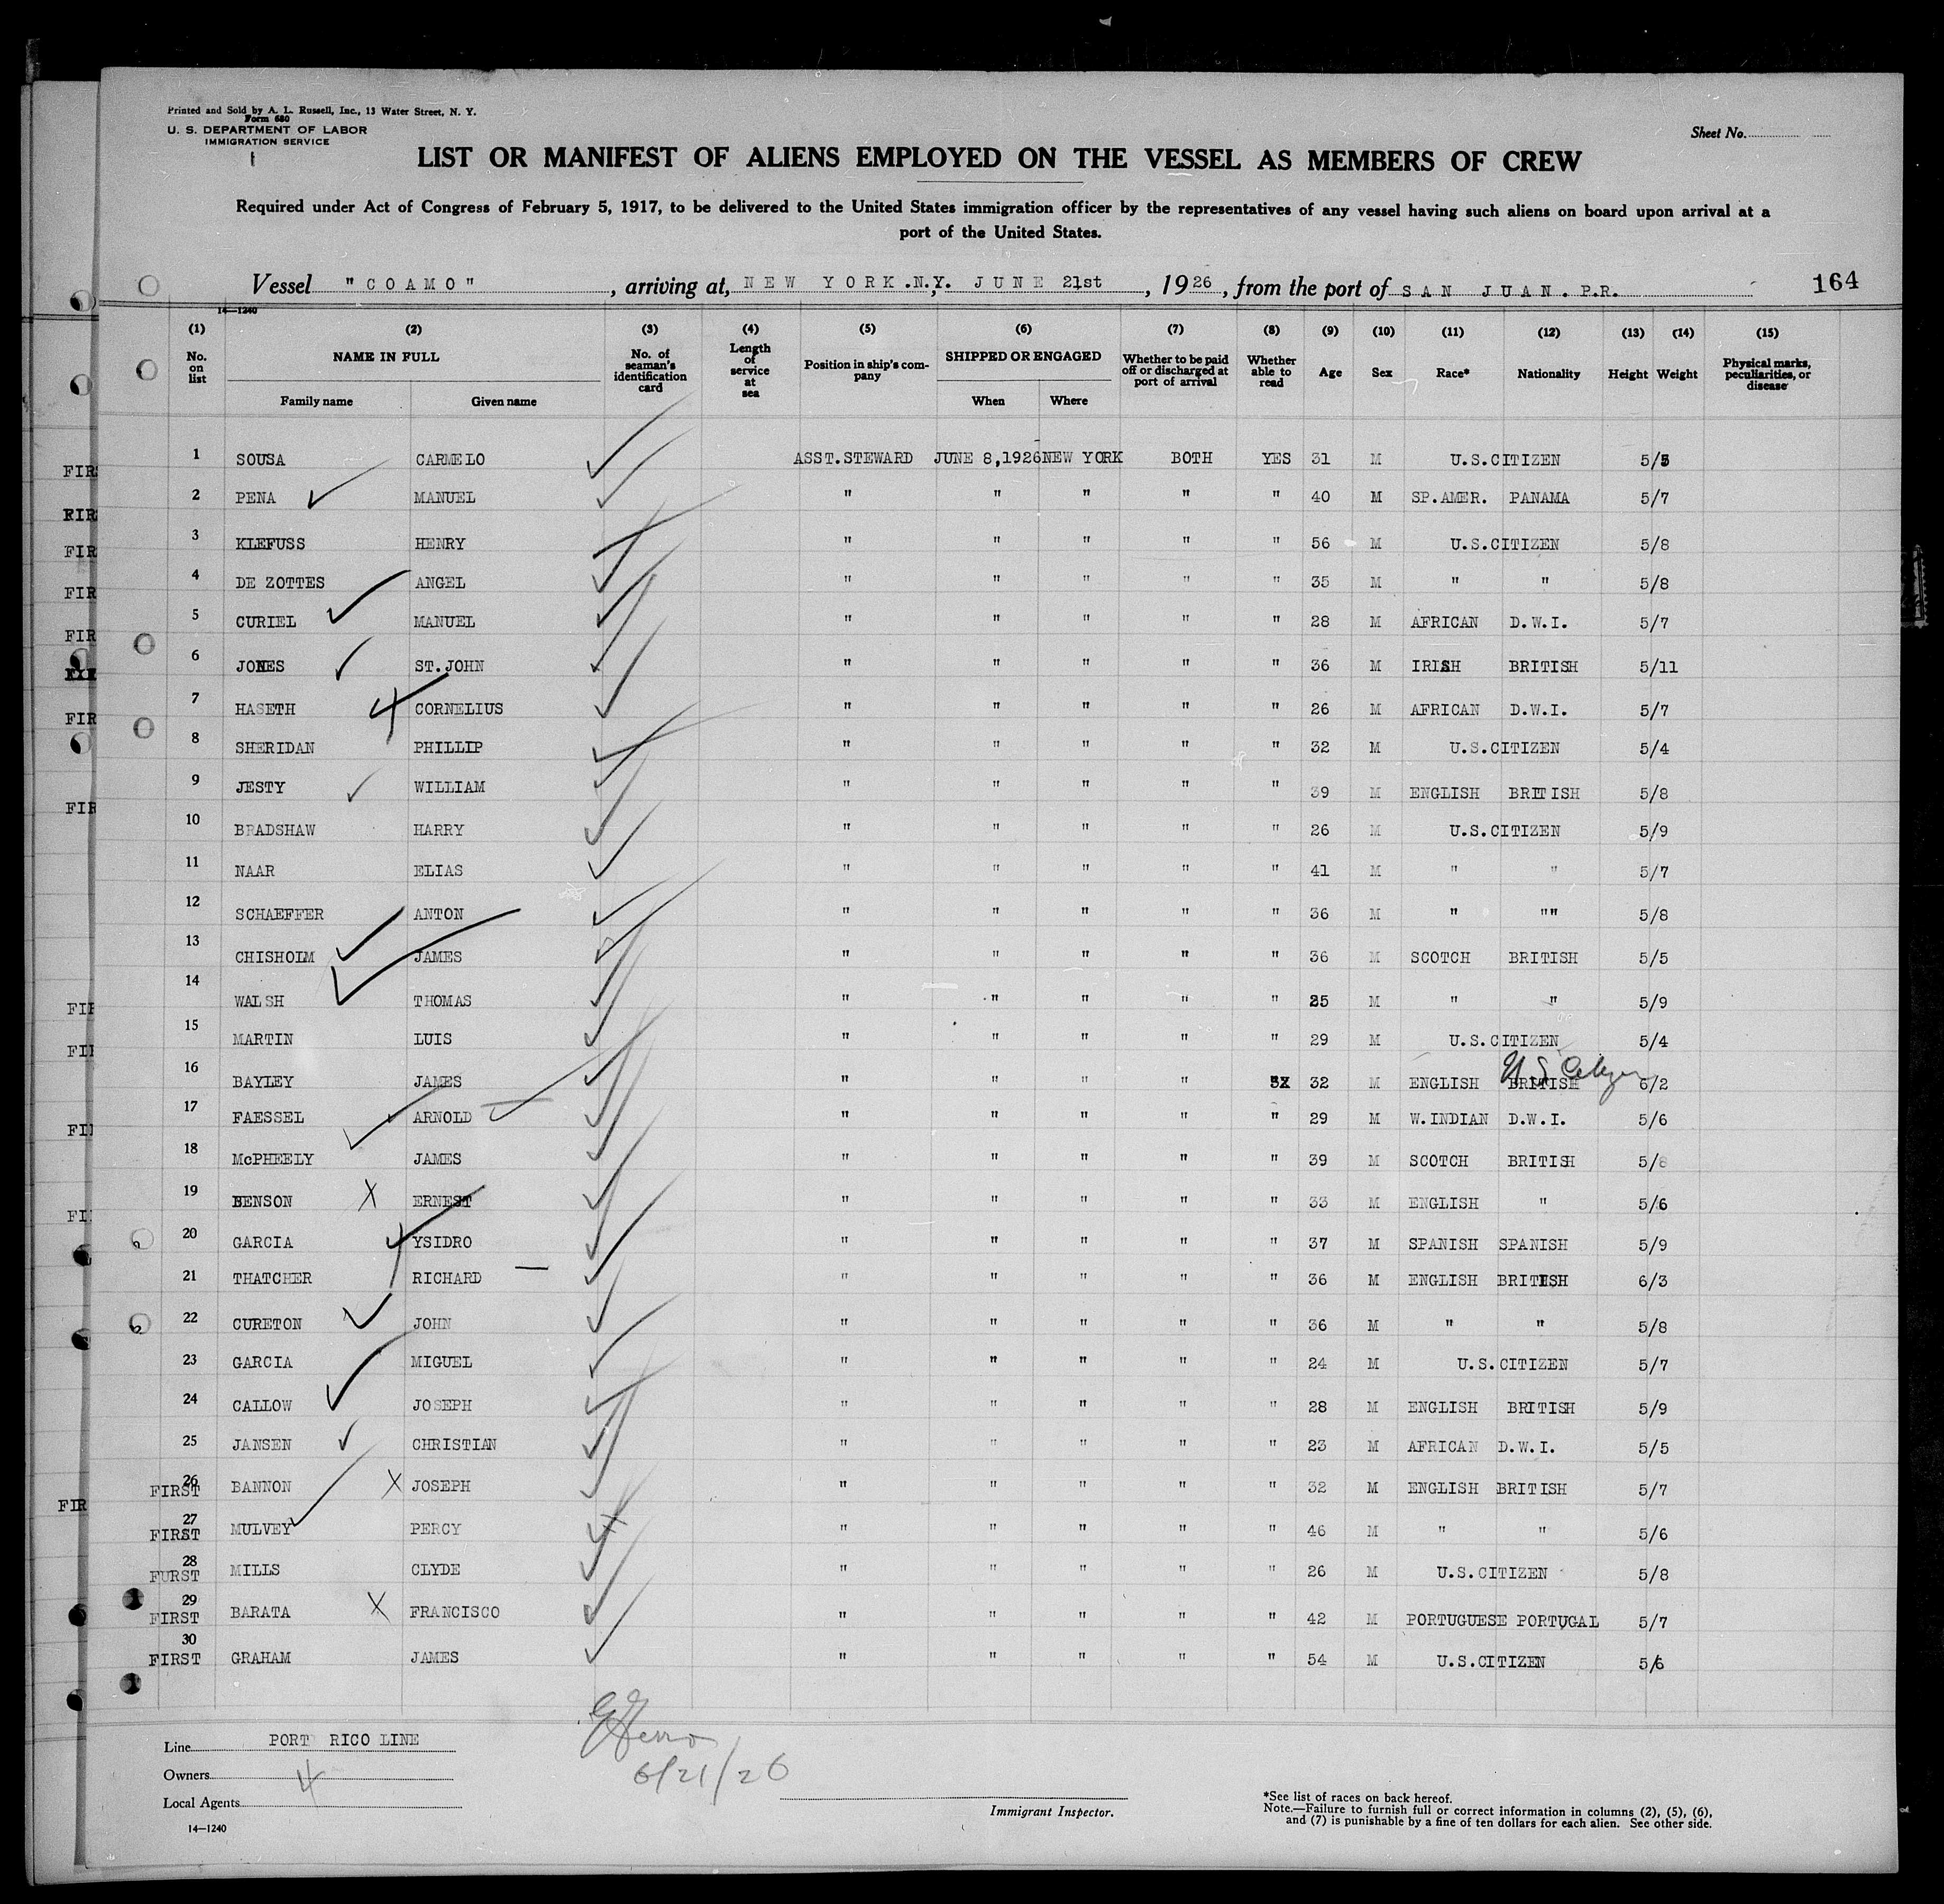 Printed and Sold by A. L. Russell, Inc., 13 Water Street, N. Y.
Form 680
U. S. DEPARTMENT OF LABOR
IMMIGRATION SERVICE
Sheet No.
LIST OR MANIFEST OF ALIENS EMPLOYED ON THE VESSEL AS MEMBERS OF CREW
Required under Act of Congress of February 5, 1917, to be delivered to the United States immigration officer by the representatives of any vessel having such aliens on board upon arrival at a
port of the United States.
Vessel "COAMO", arriving at, NEW YORK.N.Y. JUNE 21st, 1926, from the port of SAN JUAN. P.R. 164
14—1240
(1) (2) (3) (4) (5) (6) (7) (8) (9) (10) (11) (12) (13) (14) (15)
No. on list NAME IN FULL Family name Given name No. of seaman's identification card Length of service at sea Position in ship's company SHIPPED OR ENGAGED When Where Whether to be paid off or discharged at port of arrival Whether able to read Age Sex Race* Nationality Height Weight Physical marks, peculiarities, or disease
1 SOUSA CARMELO ASST.STEWARD JUNE 8,1926 NEW YORK BOTH YES 31 M U.S.CITIZEN 5/5
2 PENA MANUEL " " " " " 40 M SP.AMER. PANAMA 5/7
3 KLEFUSS HENRY " " " " " 56 M U.S.CITIZEN 5/8
4 DE ZOTTES ANGEL " " " " " 35 M " " 5/8
5 CURIEL MANUEL " " " " " 28 M AFRICAN D.W.I. 5/7
6 JONES ST.JOHN " " " " " 36 M IRISH BRITISH 5/11
7 HASETH CORNELIUS " " " " " 26 M AFRICAN D.W.I. 5/7
8 SHERIDAN PHILLIP " " " " " 32 M U.S.CITIZEN 5/4
9 JESTY WILLIAM " " " " " 39 M ENGLISH BRITISH 5/8
10 BRADSHAW HARRY " " " " " 26 M U.S.CITIZEN 5/9
11 NAAR ELIAS " " " " " 41 M " " 5/7
12 SCHAEFFER ANTON " " " " " 36 M " "" 5/8
13 CHISHOLM JAMES " " " " " 36 M SCOTCH BRITISH 5/5
14 WALSH THOMAS " " " " " 25 M " " 5/9
15 MARTIN LUIS " " " " " 29 M U.S.CITIZEN 5/4
16 BAYLEY JAMES " " " " 32 M ENGLISH BRITISH U S Citizen 6/2
17 FAESSEL ARNOLD " " " " " 29 M W.INDIAN D.W.I. 5/6
18 McPHEELY JAMES " " " " " 39 M SCOTCH BRITISH 5/8
19 BENSON X ERNEST " " " " " 33 M ENGLISH " 5/6
20 GARCIA YSIDRO " " " " " 37 M SPANISH SPANISH 5/9
21 THATCHER RICHARD " " " " " 36 M ENGLISH BRITISH 6/3
22 CURETON JOHN " " " " " 36 M " " 5/8
23 GARCIA MIGUEL " " " " " 24 M U.S.CITIZEN 5/7
24 CALLOW JOSEPH " " " " " 28 M ENGLISH BRITISH 5/9
25 JANSEN CHRISTIAN " " " " " 23 M AFRICAN D.W.I. 5/5
26 FIRST BANNON X JOSEPH " " " " " 32 M ENGLISH BRITISH 5/7
27 FIRST MULVEY PERCY " " " " " 46 M " " 5/6
28 FURST MILLS CLYDE " " " " " 26 M U.S.CITIZEN 5/8
29 FIRST BARATA X FRANCISCO " " " " " 42 M PORTUGUESE PORTUGAL 5/7
30 FIRST GRAHAM JAMES " " " " " 54 M U.S.CITIZEN 5/6
Line PORT RICO LINE
Owners
Local Agents
14—1240
6/21/26
Immigrant Inspector.
*See list of races on back hereof.
Note.—Failure to furnish full or correct information in columns (2), (5), (6),
and (7) is punishable by a fine of ten dollars for each alien. See other side.